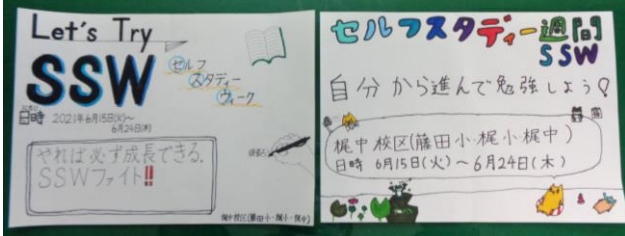 Let's Try
SSW
セルフ
スタディー
ウィーク
日時 2021年6月15日(火)~
6月24日(木)
やれば必ず成長できる.
SSWファイト!!
梶中校区(藤田小・梶小・梶中)
セルフスタディー週間
SSW
自分から進んで勉強しよう!
梶中校区(藤田小・梶小・梶中)
日時 6月15日(火)~6月24日(木)